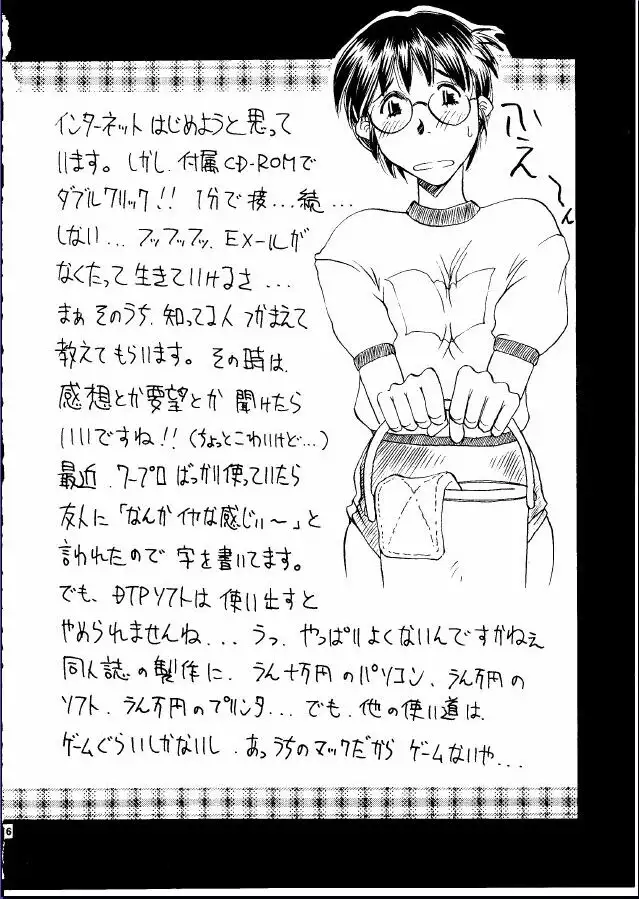 インターネットはじめようと思って
います。しかし、付属CD-ROMで
ダブルクリック!! 1分で接...続...
しない... フッフッフッ、EX-ルが
なくたって生きていけるさ...
まぁ そのうち、知ってる人 つかまえて
教えてもらいます。その時は、
感想とか要望とか 聞けたら
いいですね!! (ちょっとこわいけど...)
最近、ワープロばっかり使っていたら
友人に「なんかイヤな感じぃ〜」と
言われたので 字を書いてます。
でも、DTPソフトは 使い出すと
やめられませんね... うっ、やっぱりよくないんですかねぇ
同人誌の製作に、うん十万円のパソコン、うん万円の
ソフト、うん万円のプリンタ... でも、他の使い道は、
ゲームぐらいしかないし、あっうちのマックだから ゲームないや...
ふえ〜ん
16